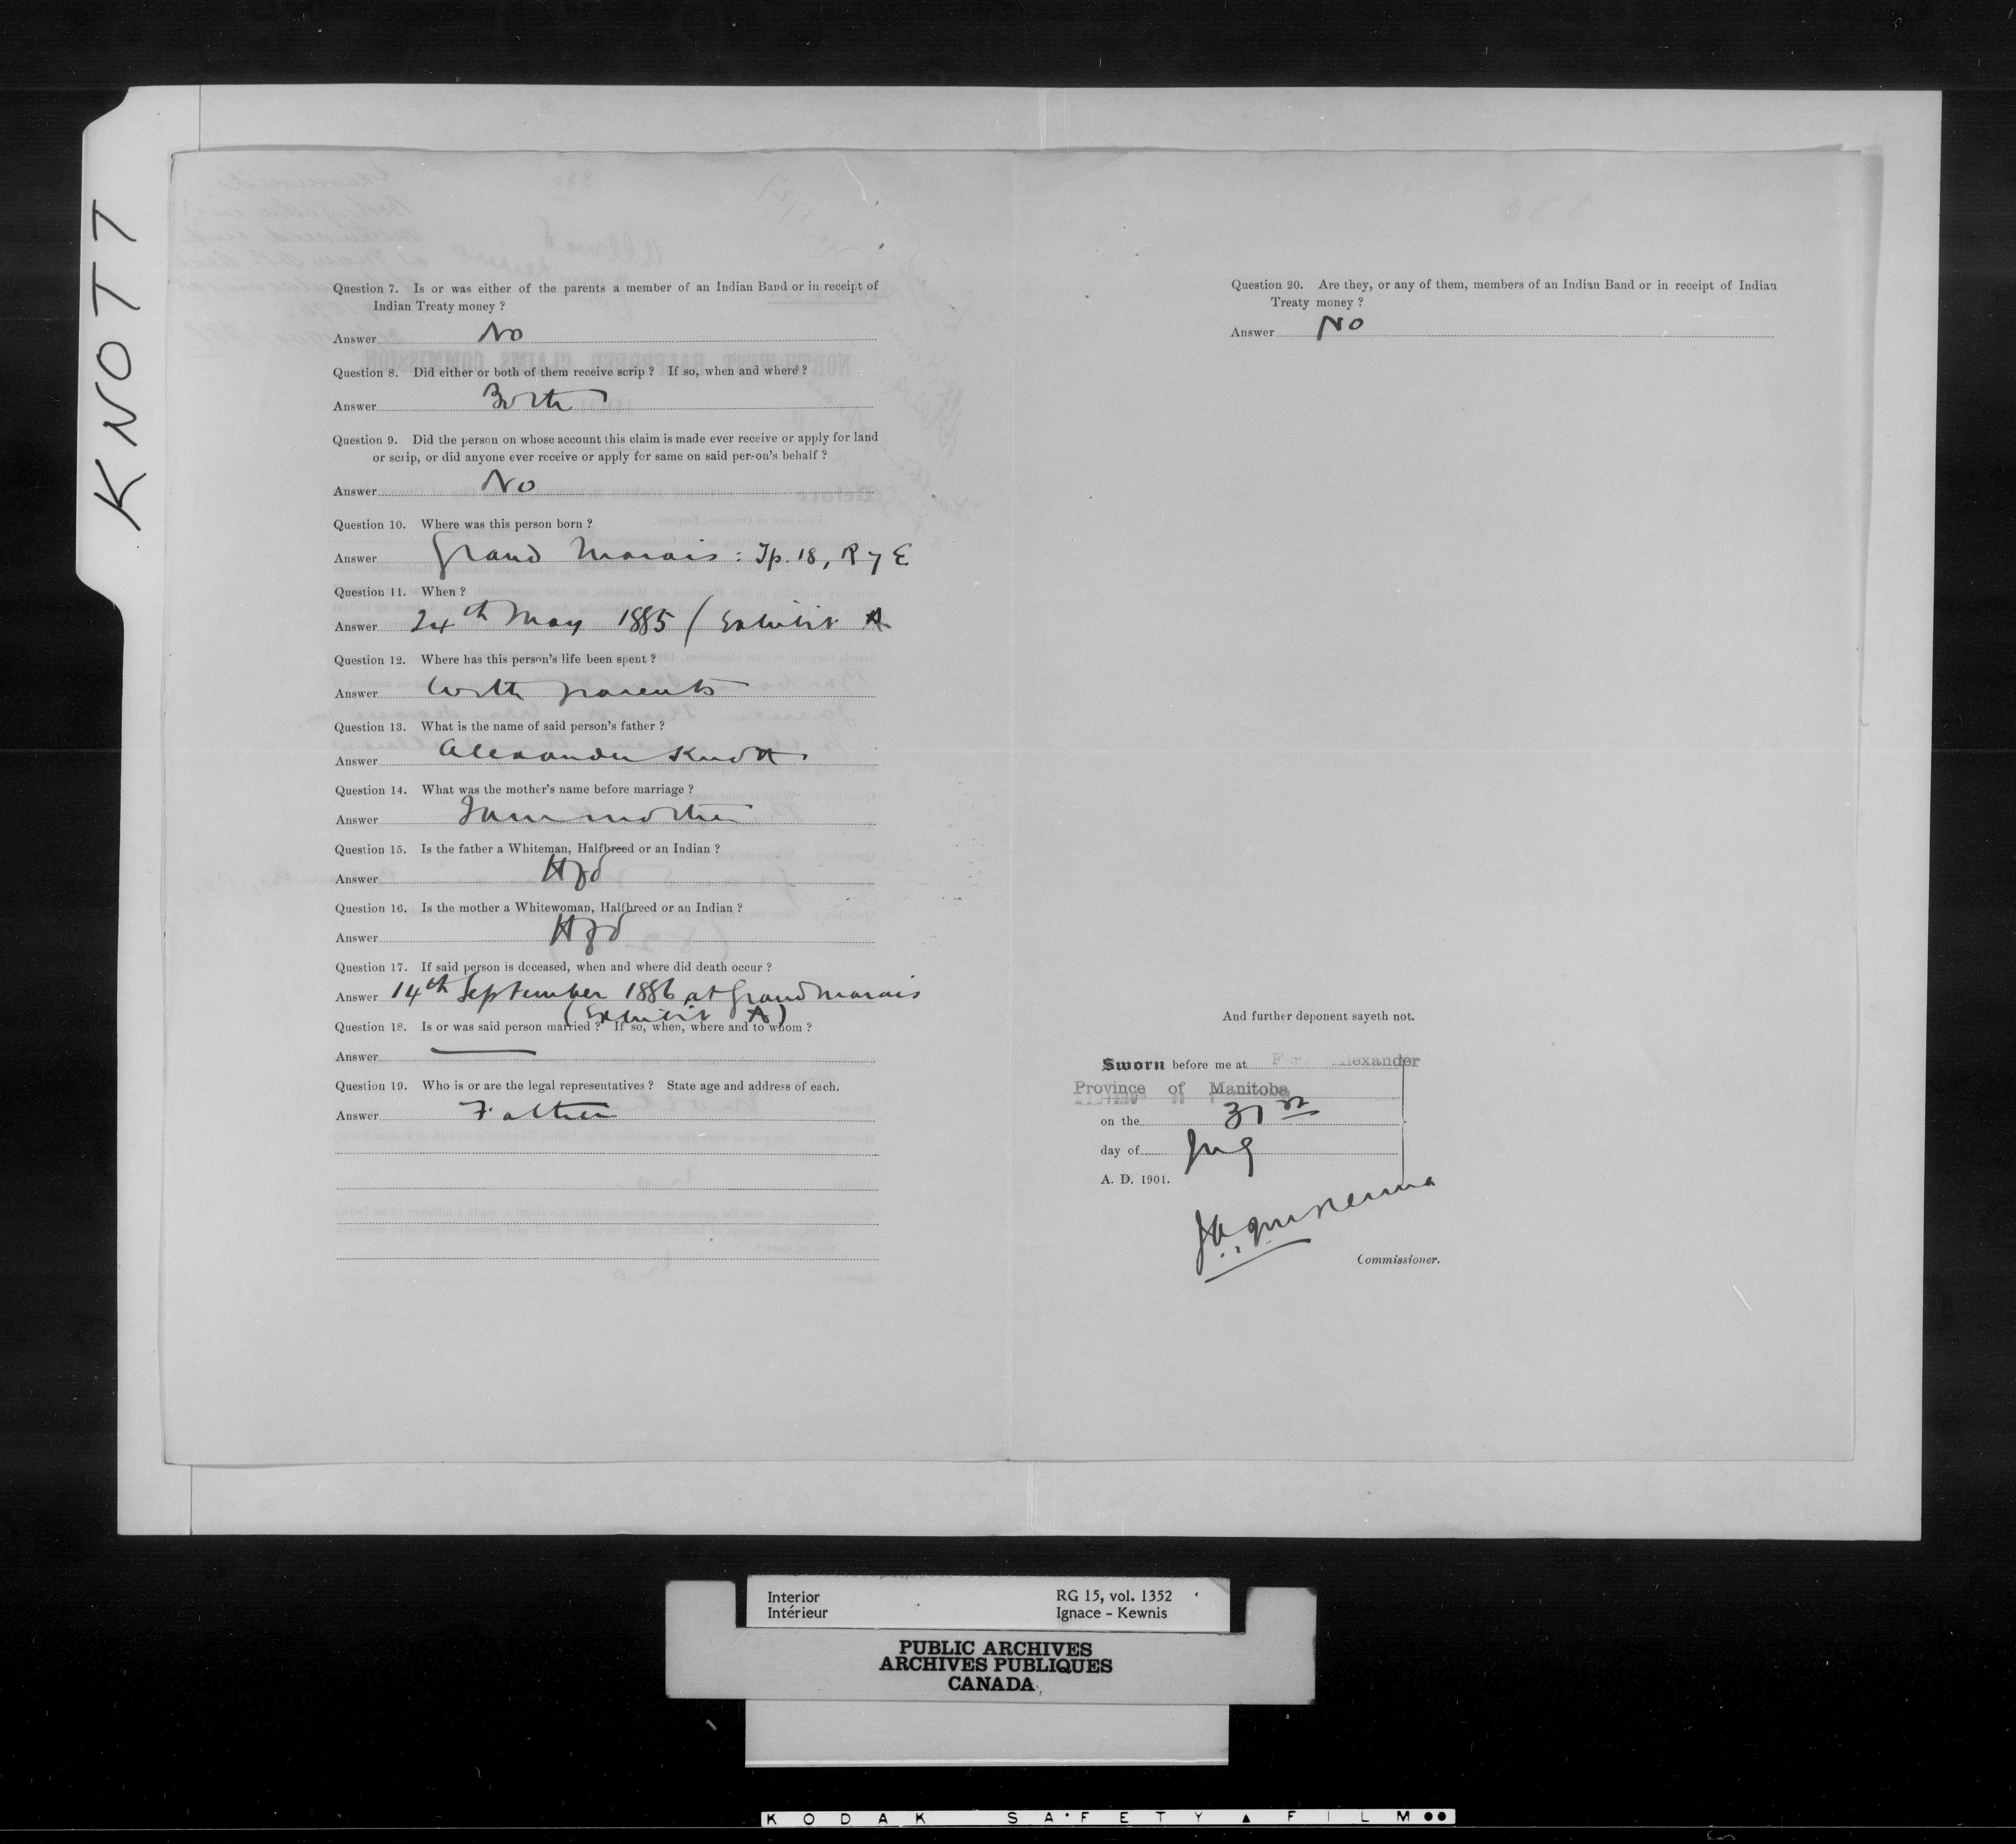 KNOTT
Question 7. Is or was either of the parents a member of an Indian Band or in receipt of
Indian Treaty money ?
Answer No
Question 8. Did either or both of them receive scrip ? If so, when and where ?
Answer Both
Question 9. Did the person on whose account this claim is made ever receive or apply for land
or scrip, or did anyone ever receive or apply for same on said person's behalf ?
Answer No
Question 10. Where was this person born ?
Answer Grand Marais : Tp. 18, R 7 E
Question 11. When ?
Answer 24th May 1885 ( Exhibit A
Question 12. Where has this person's life been spent ?
Answer With parents
Question 13. What is the name of said person's father ?
Answer Alexander Knott
Question 14. What was the mother's name before marriage ?
Answer I am mother
Question 15. Is the father a Whiteman, Halfbreed or an Indian ?
Answer Hfd
Question 16. Is the mother a Whitewoman, Halfbreed or an Indian ?
Answer Hfd
Question 17. If said person is deceased, when and where did death occur ?
Answer 14th September 1886 at Grand Marais
(Exhibit A)
Question 18. Is or was said person married ? If so, when, where and to whom ?
Answer
Question 19. Who is or are the legal representatives ? State age and address of each.
Answer Father
Question 20. Are they, or any of them, members of an Indian Band or in receipt of Indian
Treaty money ?
Answer No
And further deponent sayeth not.
Sworn before me at F r. lexander
Province of Manitoba
on the 31st
day of
A. D. 1901.
Commissioner.
Interior
Intérieur
RG 15, vol. 1352
Ignace - Kewnis
PUBLIC ARCHIVES
ARCHIVES PUBLIQUES
CANADA
KODAK SAFETY ▲ FILM ●●